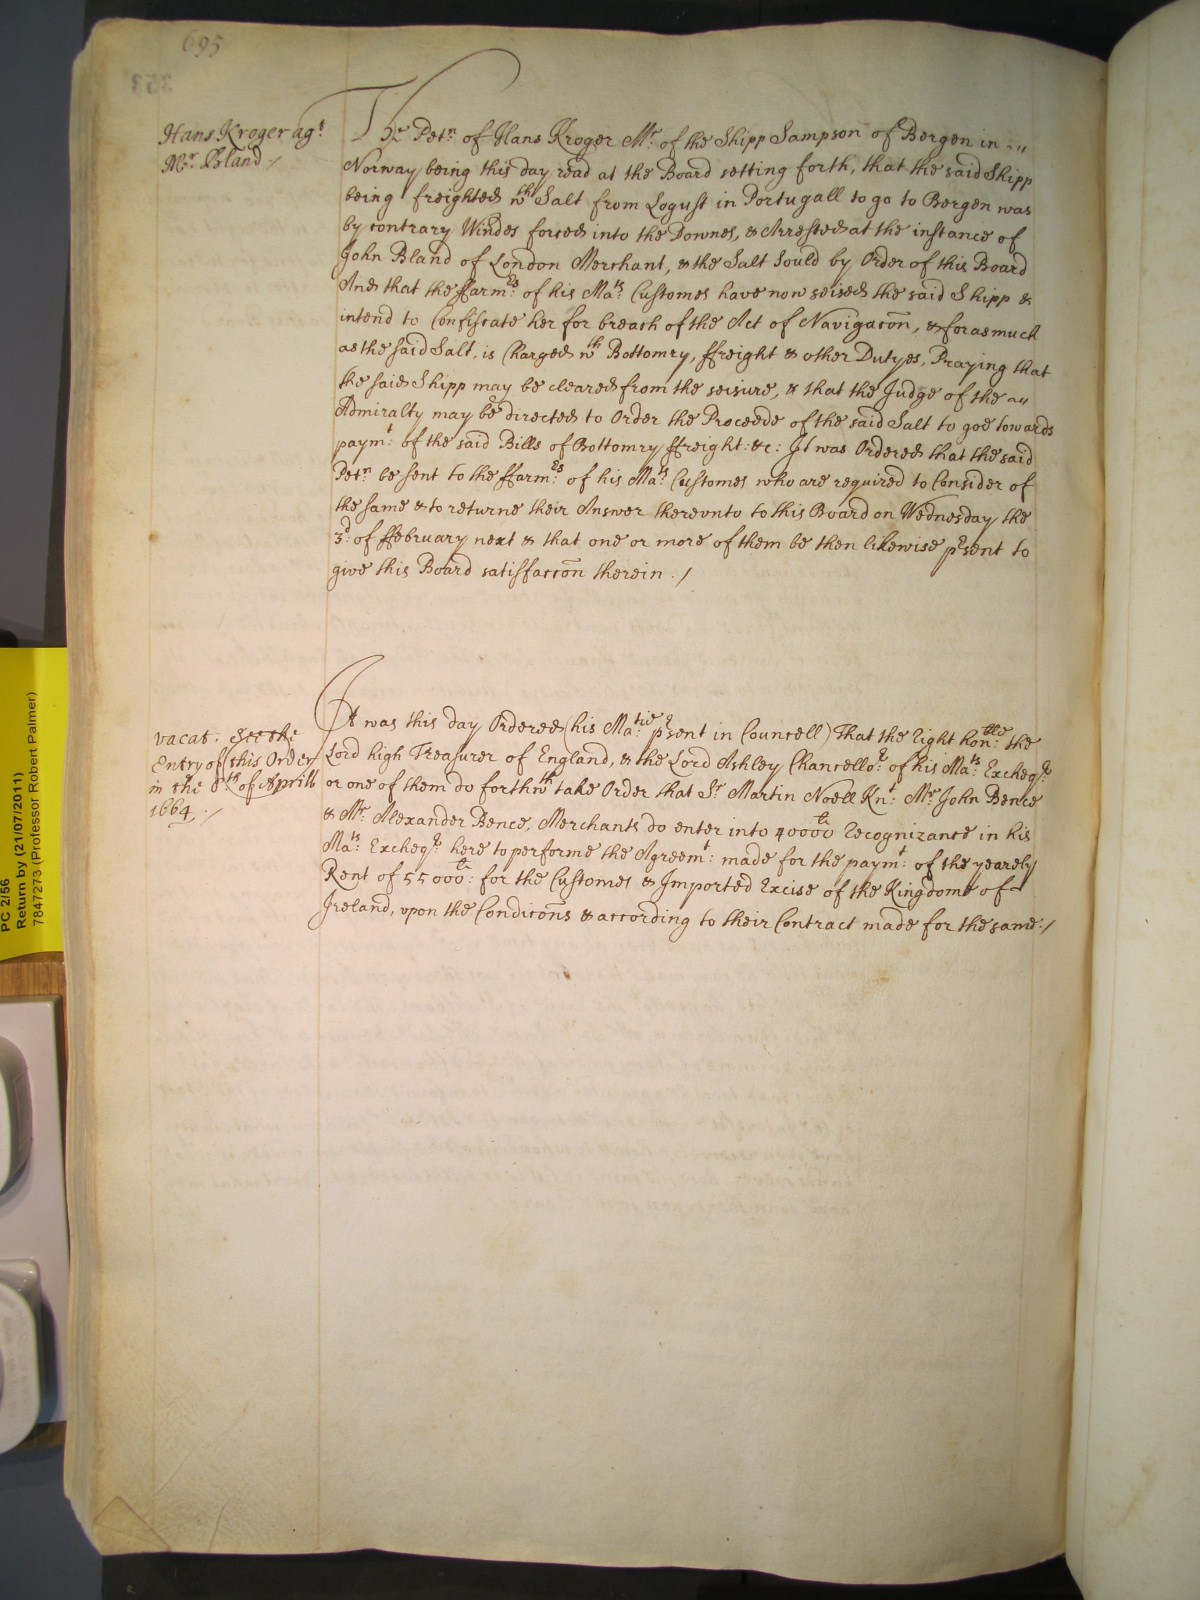 695
Hans Kroger agt
Mr. Bland /
The Petn. of Hans Kroger Mr. of the Shipp Sampson of Bergen in
Norway being this day read at the Board setting forth, that the said Shipp
being freighted wth Salt from Logust in Portugall to go to Bergen was
by contrary Windes forced into the Downes, & Arrested at the instance of
John Bland of London Merchant, & the Salt Sould by Order of this Board
And that the ffarmers. of his Mats. Customes have now seised the said Shipp &
intend to Confiscate her for breach of the Act of Navigacon, & forasmuch
as the said Salt, is Charged wth Bottomry, ffreight & other Dutyes, Praying that
the said Shipp may be cleared from the seisure, & that the Judge of the
Admiralty may be directed to Order the Proceede of the said Salt to goe towards
paymt: of the said Bills of Bottomry ffreight: &c: It was Ordered that the said
Petn be sent to the ffarmers. of his Mats Customes who are required to Consider of
the same & to returne their Answer therevnto to this Board on Wednesday the
3d: of ffebruary next & that one or more of them be then likewise present to
give this Board satisfaccon therein ./
vacat. See the
Entry of this Order
in the 8th of Aprill
1664. /
It was this day Ordered (his Matie: present in Councell) That the right honble: the
Lord high Treasurer of England, & the Lord Ashley Chancellor. of his Mats. Excheqr.
or one of them do forthwth take Order that Sr Martin Noell Knt: Mr. John Bence
& Mr. Alexander Bence, Merchants do enter into 40000li recognizance in his
Mats. Excheqr. here to performe the Agreemt: made for the paymt: of the yearely
Rent of 55000li: for the Customes & Imported Excise of the Kingdome of
Ireland, upon the Condicons & according to their Contract made for the same./
PC 2/56
Return by (21/07/2011)
7847273 (Professor Robert Palmer)